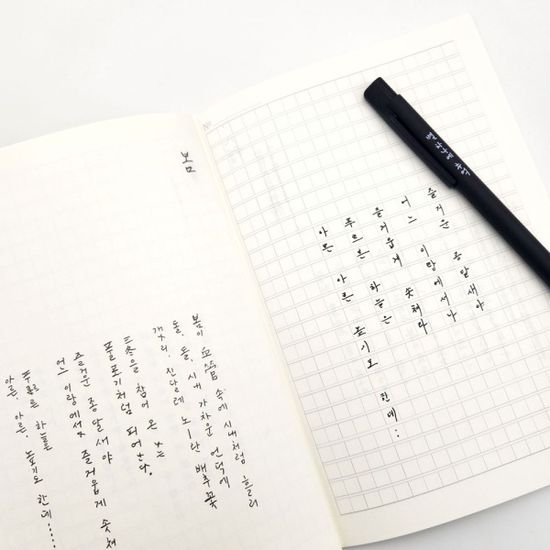 즐거운 종달새야
어느 이랑에서나
즐거웁게 솟쳐라
푸르른 하늘은
아른 아른 높기도 한데...
봄
봄이 血管 속에 시내처럼 흘러
돌, 돌, 시내 가차운 언덕에
개나리, 진달레 노―란 배추꽃
三冬을 참어 온 나는
풀포기처럼 피어난다.
즐거운 종달새야
어느 이랑에서나 즐거웁게 솟쳐
푸르른 하늘은
아른, 아른, 높기도 한데......
별 하나에 추억